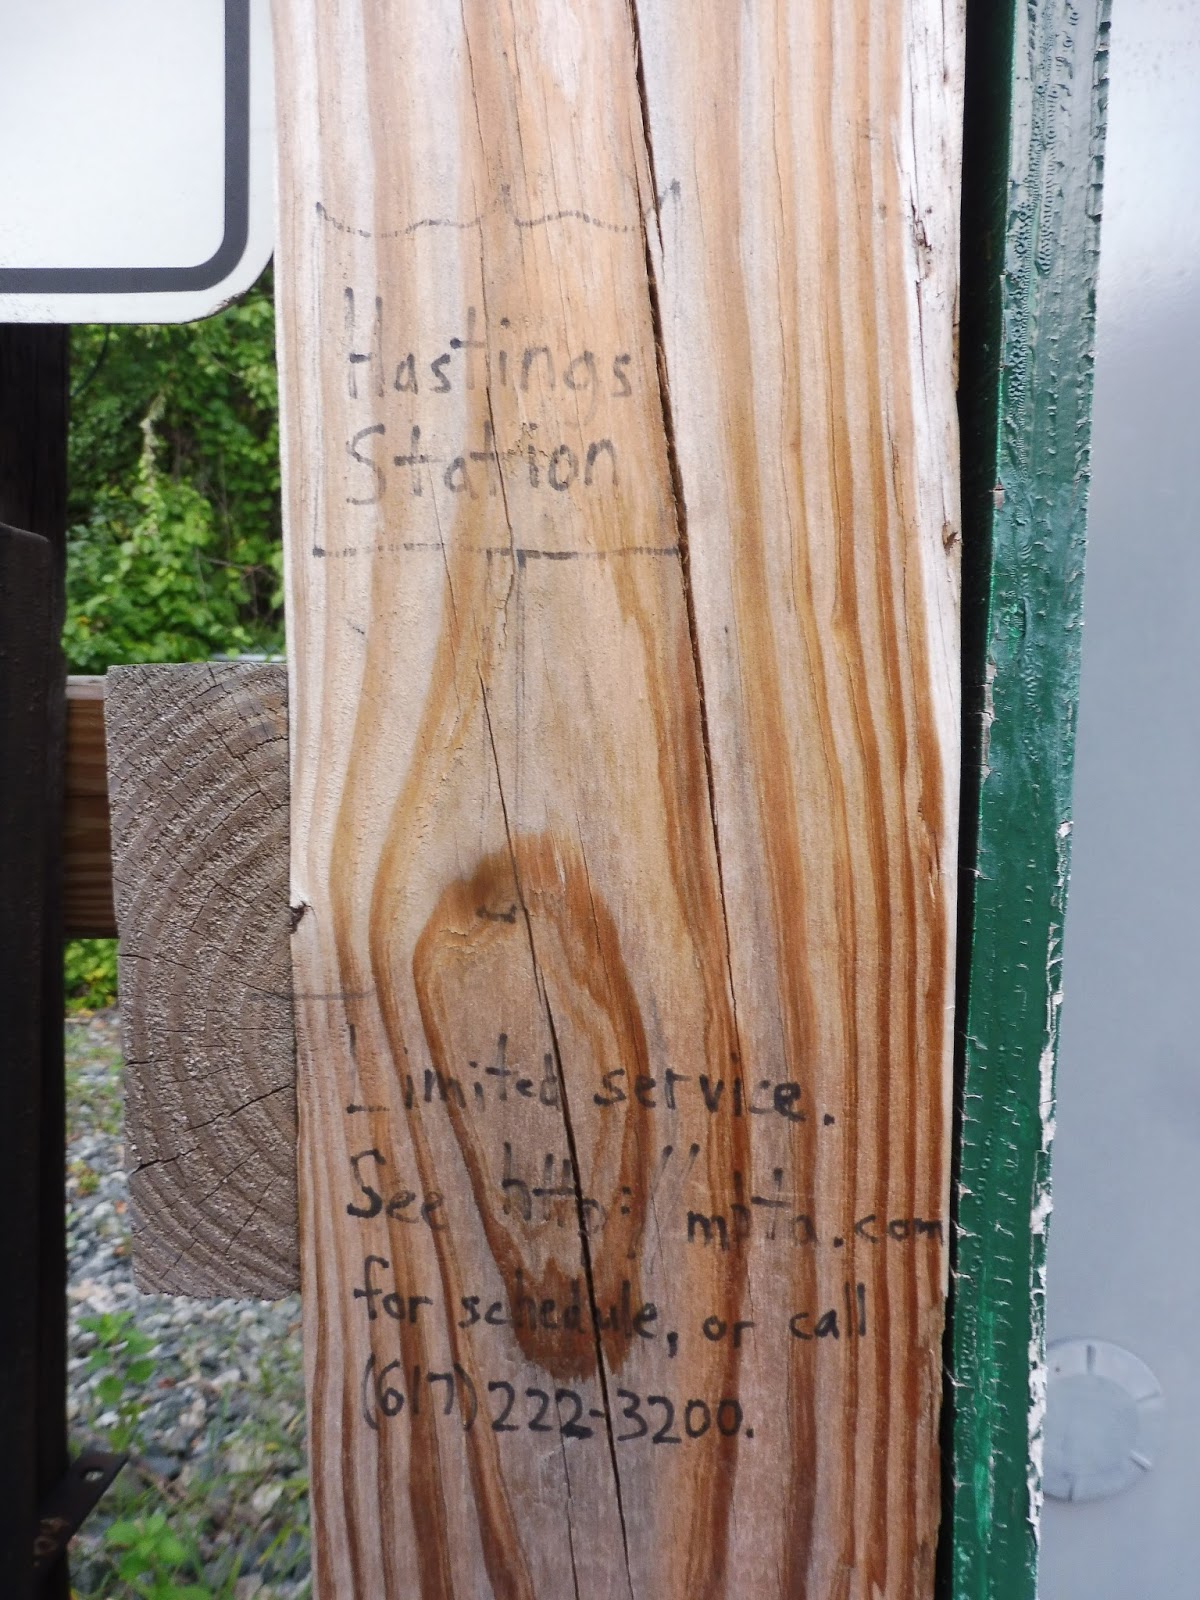 Hastings
Station
Limited service.
See http://mbta.com
for schedule, or call
(617)222-3200.